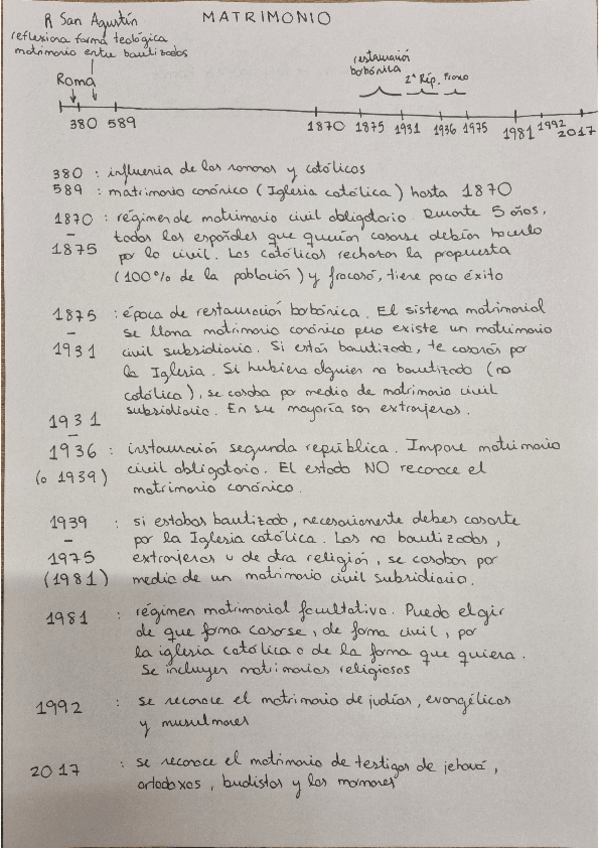 R San Agustín
MATRIMONIO
reflexiona forma teológica
matrimonio entre bautizados
Roma
restauración
borbónica
2ª Rép. Franco
380 589 1870 1875 1931 1936 1975 1981 1992 2017
380 : influencia de los romanos y católicos
589 : matrimonio canónico (Iglesia católica) hasta 1870
1870 : régimen de matrimonio civil obligatorio. Durante 5 años,
– todos los españoles que querían casarse debían hacerlo
1875 por lo civil. Los católicos rechazan la propuesta
(100% de la población) y fracasó, tiene poco éxito
1875 : época de restauración borbónica. El sistema matrimonial
– se llama matrimonio canónico pero existe un matrimonio
1931 civil subsidiario. Si estás bautizado, te casarás por
la Iglesia. Si hubiera alguien no bautizado (no
católica), se casaba por medio de matrimonio civil
subsidiario. En su mayoría son extranjeros.
1931
–
1936 : instauración segunda república. Impone matrimonio
(o 1939) civil obligatorio. El estado NO reconoce el
matrimonio canónico.
1939 : si estabas bautizado, necesariamente debes casarte
– por la Iglesia católica. Los no bautizados,
1975 extranjeros u de otra religión, se casaban por
(1981) medio de un matrimonio civil subsidiario.
1981 : régimen matrimonial facultativo. Puedo elgir
de que forma casarse, de forma civil, por
la iglesia católica o de la forma que quiera.
Se incluyen matrimonios religiosos
1992 : se reconoce el matrimonio de judíos, evangélicos
y musulmanes
2017 : se reconoce el matrimonio de testigos de jehová,
ortodoxos, budistas y los mormones